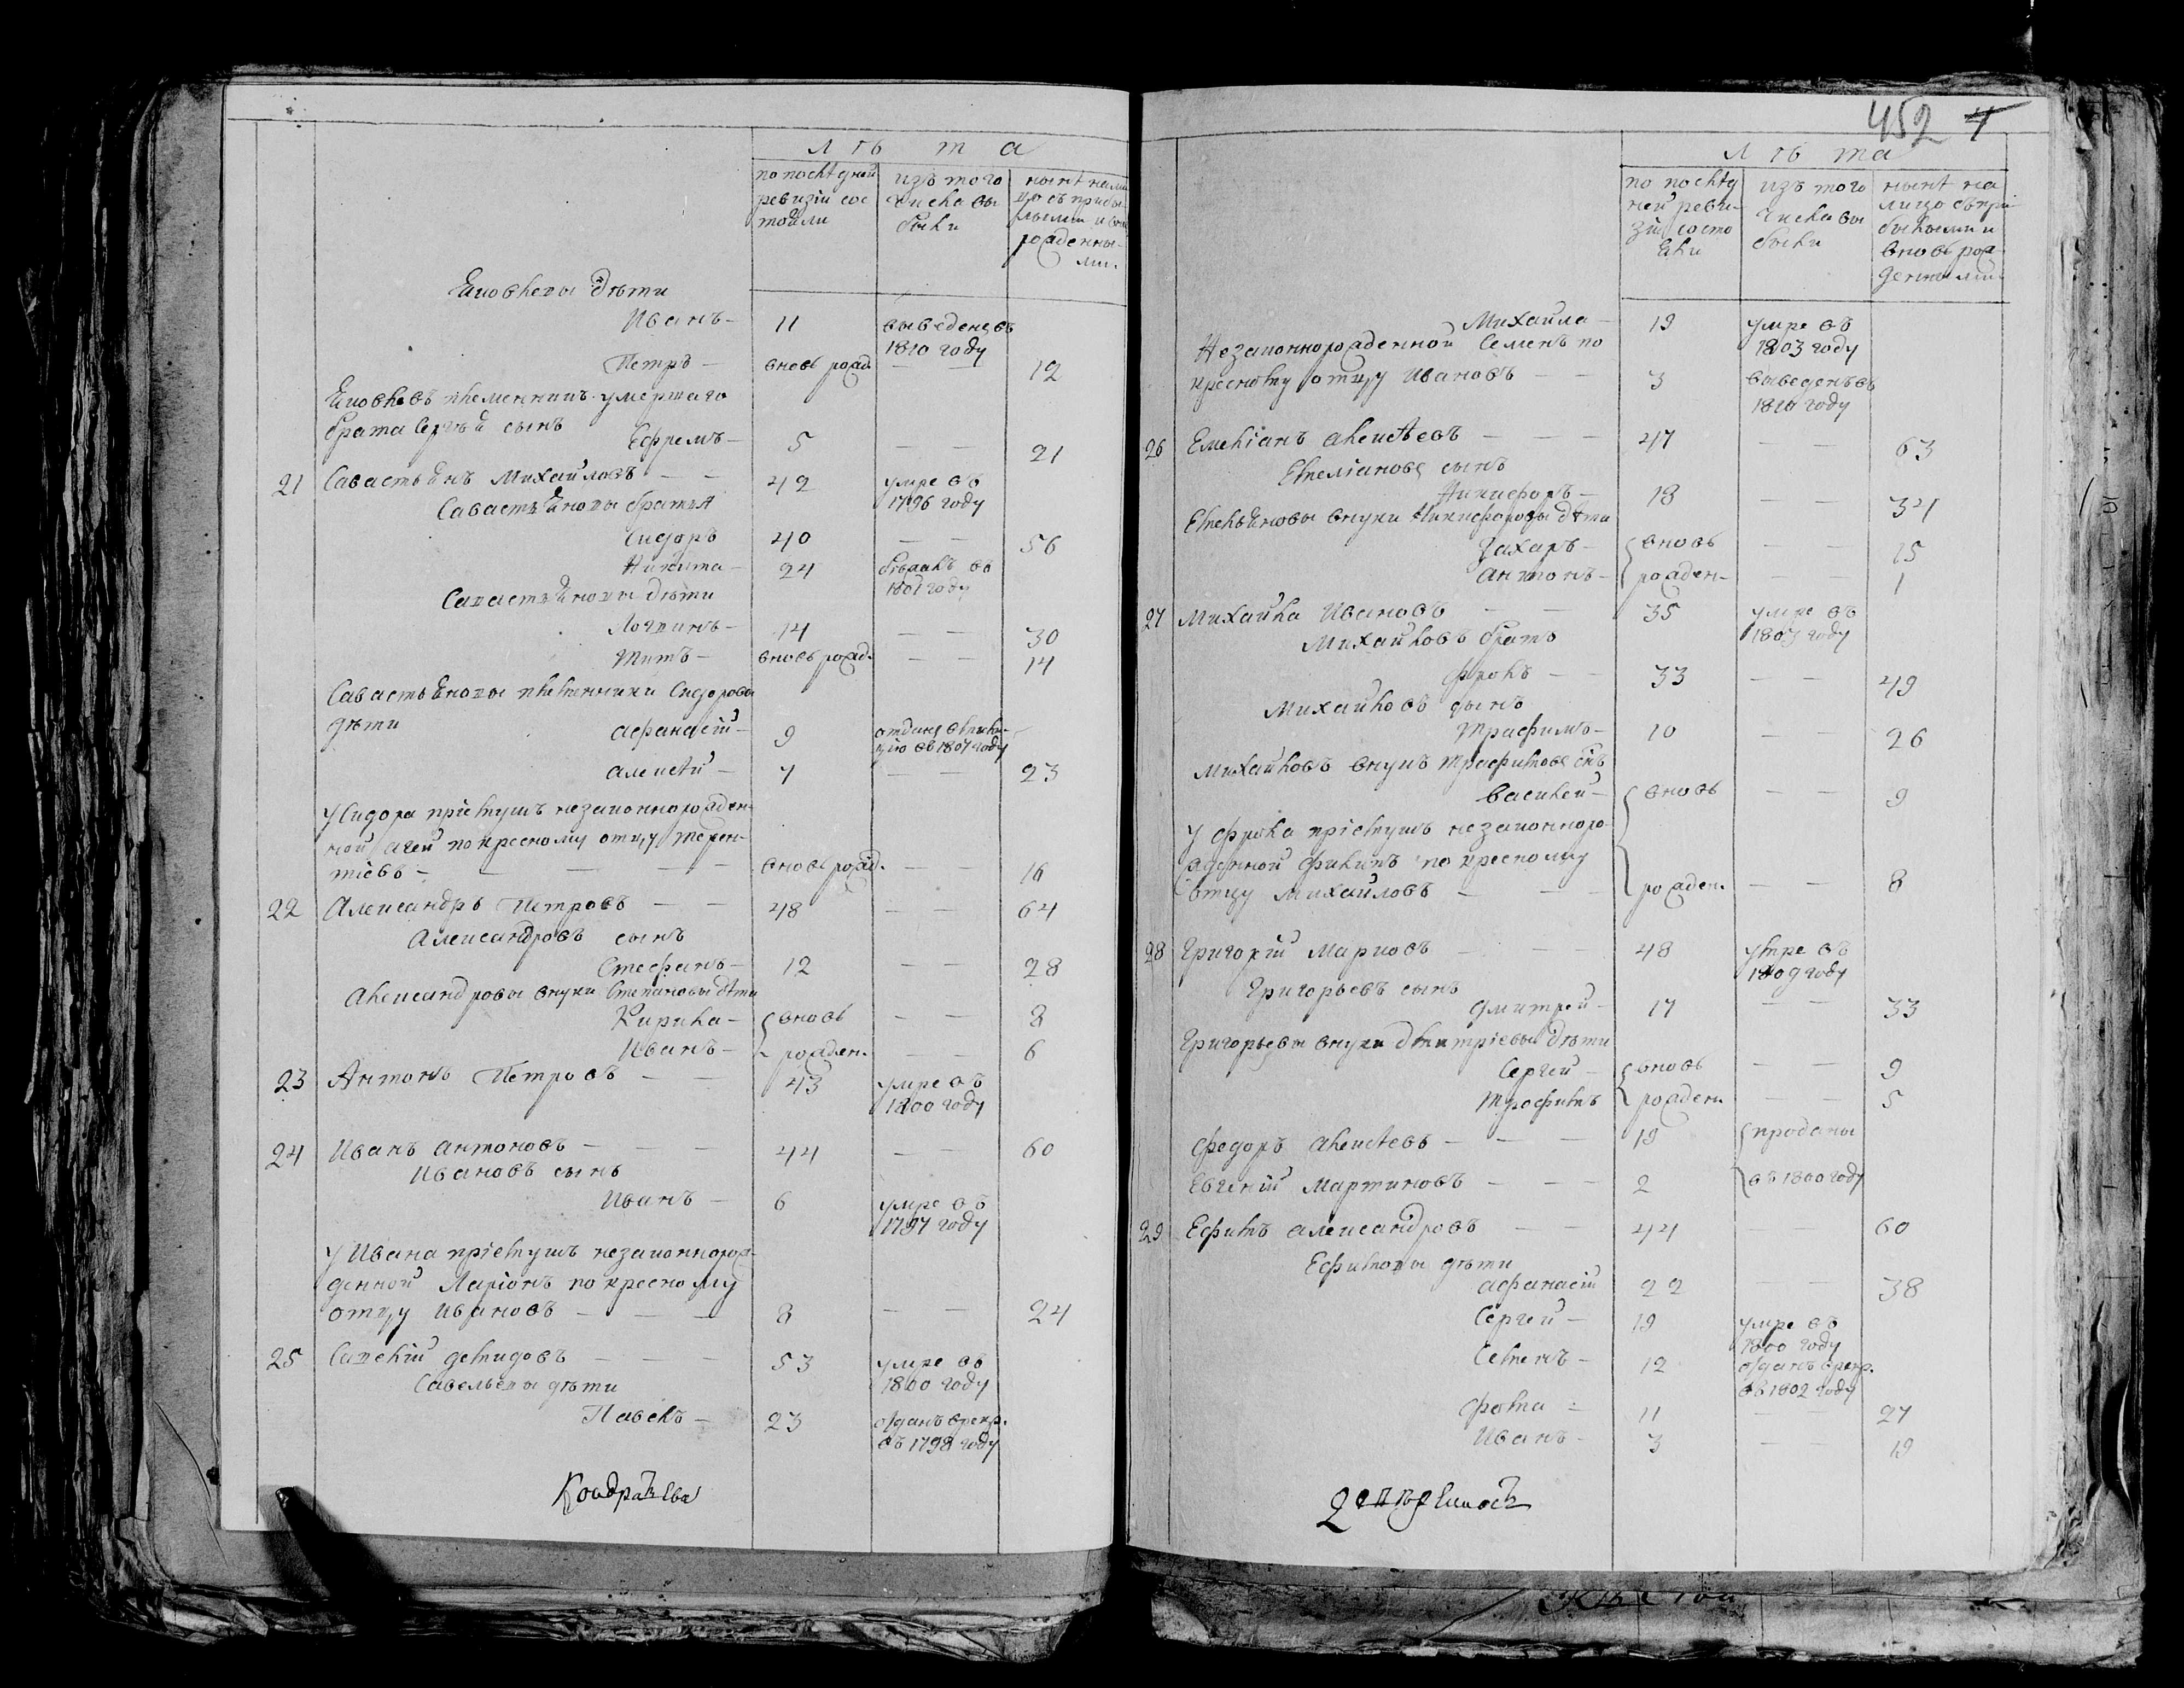 лѣта
по послѣдней ревизіи состояли
изъ того числа выбыли
нынѣ на лицо съ прибылыми и вновь рожденными
Іевовлевы дѣти
Иванъ — 11 выведенъ въ 1810 году
Петръ — вновь рожд. — — 12
племянникъ умершаго
брата Сергѣя сынъ
Ефремъ — 5 — — 21
21 Савастьянъ Михайловъ — — 42 умре въ 1796 году
Савастьяновы братья
Сидоръ 40 — — 56
Никита — 24 бѣжалъ въ 1801 году
Савастьяновы дѣти
Логвинъ — 14 — — 30
Титъ — вновь рожд. — — 14
Савастьяновы племянники Сидоровы
дѣти
Афанасій — 9 отданъ въ 1807 году
Алексѣй — 7 — — 23
У Сидора пріемышъ незаконнорожден-
ной Агей по кресному отцу Терен-
тіевъ — — — — вновь рожд. — — 16
22 Александръ Петровъ — — 48 — — 64
Александровъ сынъ
Стефанъ — 12 — — 28
Александровы внуки Степановы дѣти
Кирила — вновь — — 8
Иванъ — рожден. — — 6
23 Антонъ Петровъ — — 43 умре въ 1800 году
24 Иванъ Антоновъ — — — 44 — — 60
Ивановъ сынъ
Иванъ — 6 умре въ 1797 году
У Ивана пріемышъ незаконнорож-
денной Ларіонъ по кресному
отцу Ивановъ — — — 8 — — 24
25 Савелій Демидовъ — — — 53 умре въ 1800 году
Савельевы дѣти
Павелъ — 23 отданъ в рекр. въ 1798 году
452
лѣта
по послѣдней ревизіи состояли
изъ того числа выбыли
нынѣ на лицо съ прибылыми и вновь рожденными
Михайла — 19 умре въ 1803 году
Незаконнорожденной Семенъ по
кресному отцу Ивановъ — — 3 выведенъ въ 1810 году
26 Емеліанъ Алексѣевъ — — — 47 — — 63
Емеліановъ сынъ
Никифоръ — 18 — — 34
Емельяновы внуки Никифоровы дѣти
Захаръ — вновь — — 15
Антонъ — рожден. — — 1
27 Михайла Ивановъ — — 35 умре въ 1807 году
Михайловъ братъ
Фролъ — — 33 — — 49
Михайловъ сынъ
Трафимъ — 10 — — 26
Михайловъ внукъ Трофимовъ снъ
Василей — вновь — — 9
У Фрола пріемышъ незаконноро-
жденной Филипъ по кресному
отцу Михайловъ — — — рожден. — — 8
28 Григорій Марковъ — — — 48 умре въ 1809 году
Григорьевъ сынъ
Дмитрей — 17 — — 33
Григорьевы внуки Дмитріевы дѣти
Сергей — вновь — — 9
Трофимъ рожден. — — 5
Федоръ Алексѣевъ — — — 19 проданы
Евгеній Мартиновъ — — — 2 въ 1800 году
29 Ефимъ Александровъ — — 44 — — 60
Ефимовы дѣти
Афанасій 22 — — 38
Сергей — 19 умре въ 1800 году
Семенъ — 12 отданъ в рекр. въ 1802 году
Фома — 11 — — 27
Иванъ — 3 — — 19